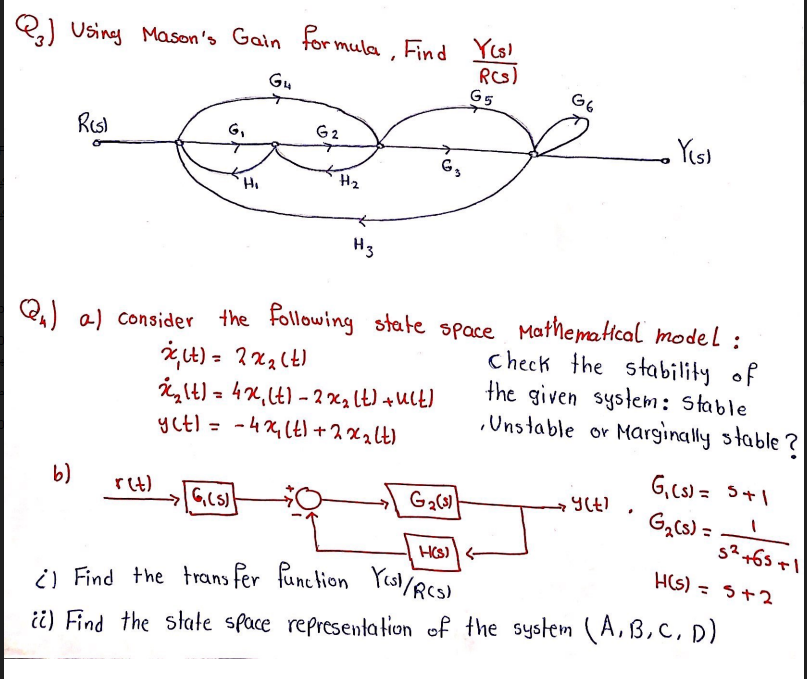 Q3) Using Mason's Gain formula, Find Y(s)/R(s)
G4
G5
G6
R(s)
G1
G2
G3
Y(s)
H1
H2
H3
Q4) a) consider the following state space Mathematical model :
ẋ1(t) = 2x2(t)
ẋ2(t) = 4x1(t) - 2x2(t) + u(t)
y(t) = -4x1(t) + 2x2(t)
Check the stability of
the given system: Stable
, Unstable or Marginally stable?
b)
r(t)
G1(s)
+
-
G2(s)
y(t) .
H(s)
G1(s) = s+1
G2(s) = 1/(s²+6s+1)
H(s) = s+2
i) Find the transfer function Y(s)/R(s)
ii) Find the state space representation of the system (A, B, C, D)